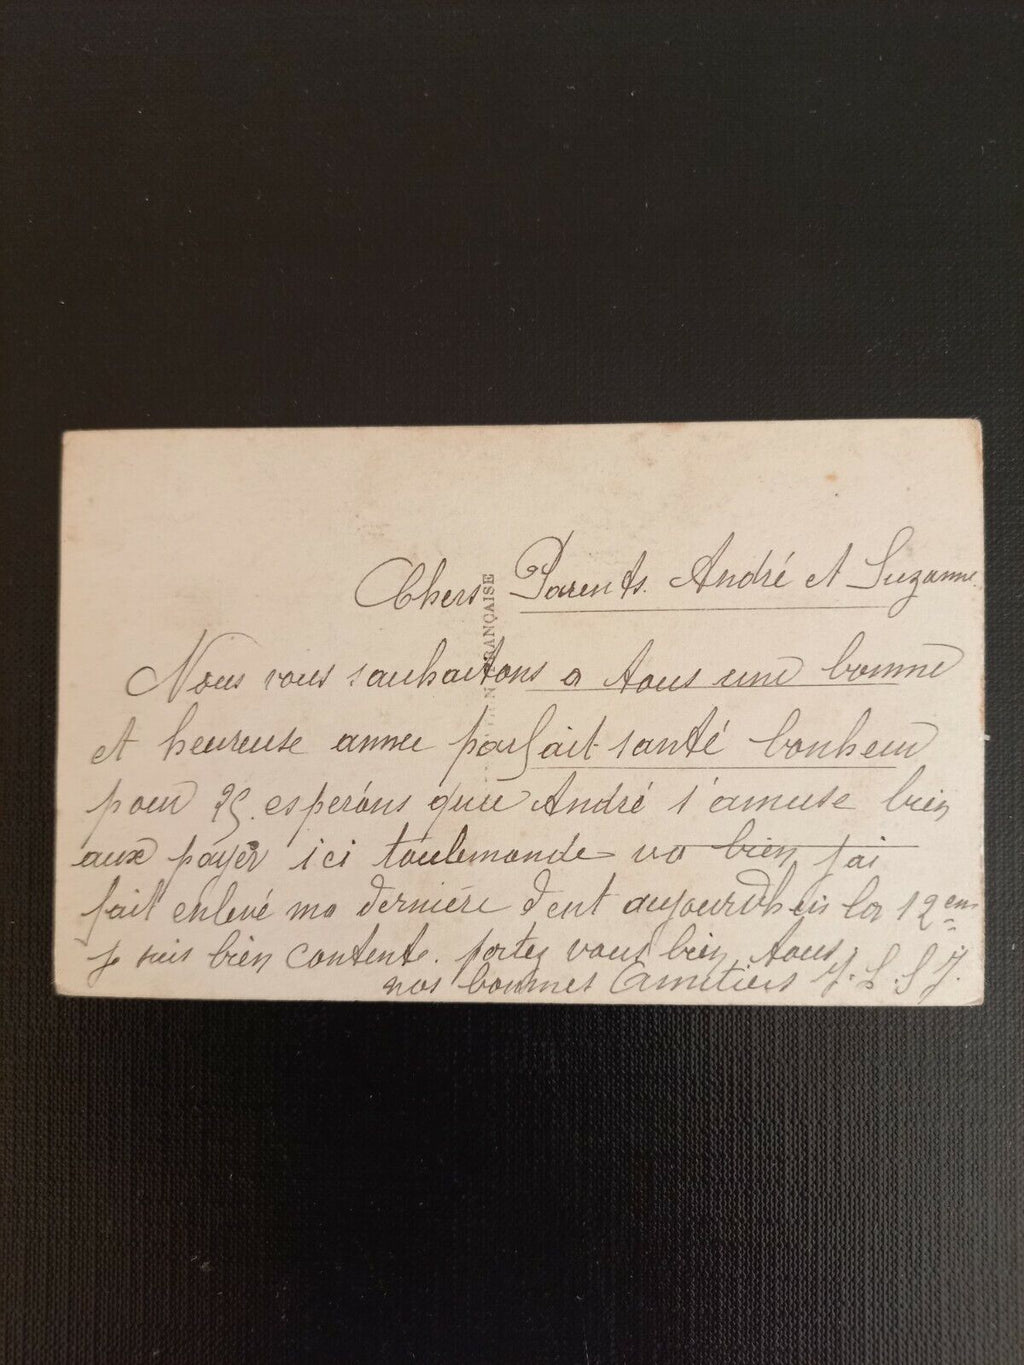 Chers Parents. André et Suzanne.
Nous vous sauhaitons a tous une bonne
et heureuse année parfait santé bonheur
pour 25. espérons que André s'amuse bien
aux payer ici toulemonde va bien, j'ai
fait enlevé ma dernière dent aujourdheis la 12em
je suis bien contente. portez vous bien, tous.
nos bonnes Amitiers Y. L. S J.
FRANÇAISE